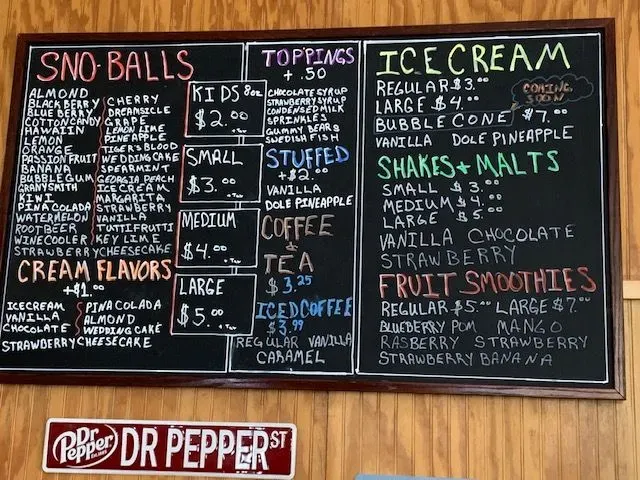 SNO-BALLS
ALMOND
BLACKBERRY
BLUEBERRY
COTTONCANDY
HAWAIIN
LEMON
ORANGE
PASSION FRUIT
BANANA
BUBBLEGUM
GRANYSMITH
KIWI
PINA COLADA
WATERMELON
ROOTBEER
WINECOOLER
STRAWBERRYCHEESECAKE
CHERRY
DREAMSICLE
GRAPE
LEMON LIME
PINEAPPLE
TIGER'S BLOOD
WEDDING CAKE
SPEARMINT
GEORGIA PEACH
ICECREAM
MARGARITA
STRAWBERRY
VANILLA
TUTTIFRUTTI
KEY LIME
CREAM FLAVORS
+$1.00
ICECREAM
VANILLA
CHOCOLATE
STRAWBERRYCHEESECAKE
PINA COLADA
ALMOND
WEDDING CAKE
KIDS 8oz
$2.00
+ Tax
SMALL
$3.00
+ Tax
MEDIUM
$4.00
+ Tax
LARGE
$5.00
+ Tax
TOPPINGS
+.50
CHOCOLATE SYRUP
STRAWBERRY SYRUP
CONDENSED MILK
SPRINKLES
GUMMY BEARS
SWEDISH FISH
STUFFED
+$2.00
VANILLA
DOLE PINEAPPLE
COFFEE
&
TEA
$3.25
ICED COFFEE
$3.99
REGULAR VANILLA
CARAMEL
ICE CREAM
REGULAR $3.00
LARGE $4.00
COMING
SOON
BUBBLE CONE $7.00
VANILLA DOLE PINEAPPLE
SHAKES + MALTS
SMALL $3.00
MEDIUM $4.00
LARGE $5.00
VANILLA CHOCOLATE
STRAWBERRY
FRUIT SMOOTHIES
REGULAR $5.00 LARGE $7.00
BLUEBERRY POM MANGO
RASBERRY STRAWBERRY
STRAWBERRY BANANA
Dr Pepper
DR PEPPER ST